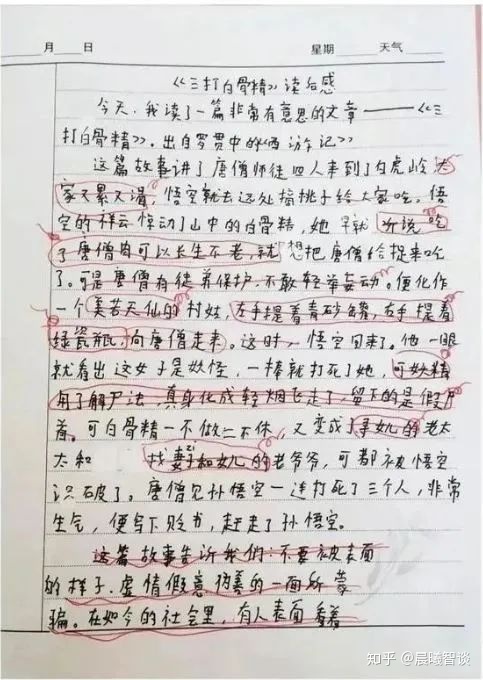 月 日 星期 天气
《三打白骨精》读后感
今天,我读了一篇非常有意思的文章——《三
打白骨精》,出自罗贯中的《西游记》
这篇故事讲了唐僧师徒四人来到了白虎岭大
家又累又渴,悟空就去远处摘桃子给大家吃。悟
空的祥云惊动了山中的白骨精,她早就听说吃
了唐僧肉可以长生不老,就想把唐僧给捉来吃
了。可是唐僧有徒弟保护,不敢轻举妄动。便化作
一个美若天仙的村姑,左手提着青砂罐,右手提着
绿瓷瓶,向唐僧走来。这时,悟空回来了。他一眼
就看出这女子是妖怪,一棒就打死了她,可妖精
用了解尸法,真身化成轻烟飞走了,留下的是假尸
首。可白骨精一不做二不休,又变成了寻女儿的老太
太和 找妻子和女儿的老爷爷,可都被悟空
识破了。唐僧见孙悟空一连打死了三个人,非常
生气,便写下贬书,赶走了孙悟空。
这篇故事告诉我们:不要被表面
的样子,虚情假意伪善的一面所蒙
骗。在如今的社会里,有人表面看着
知乎 @晨曦智谈